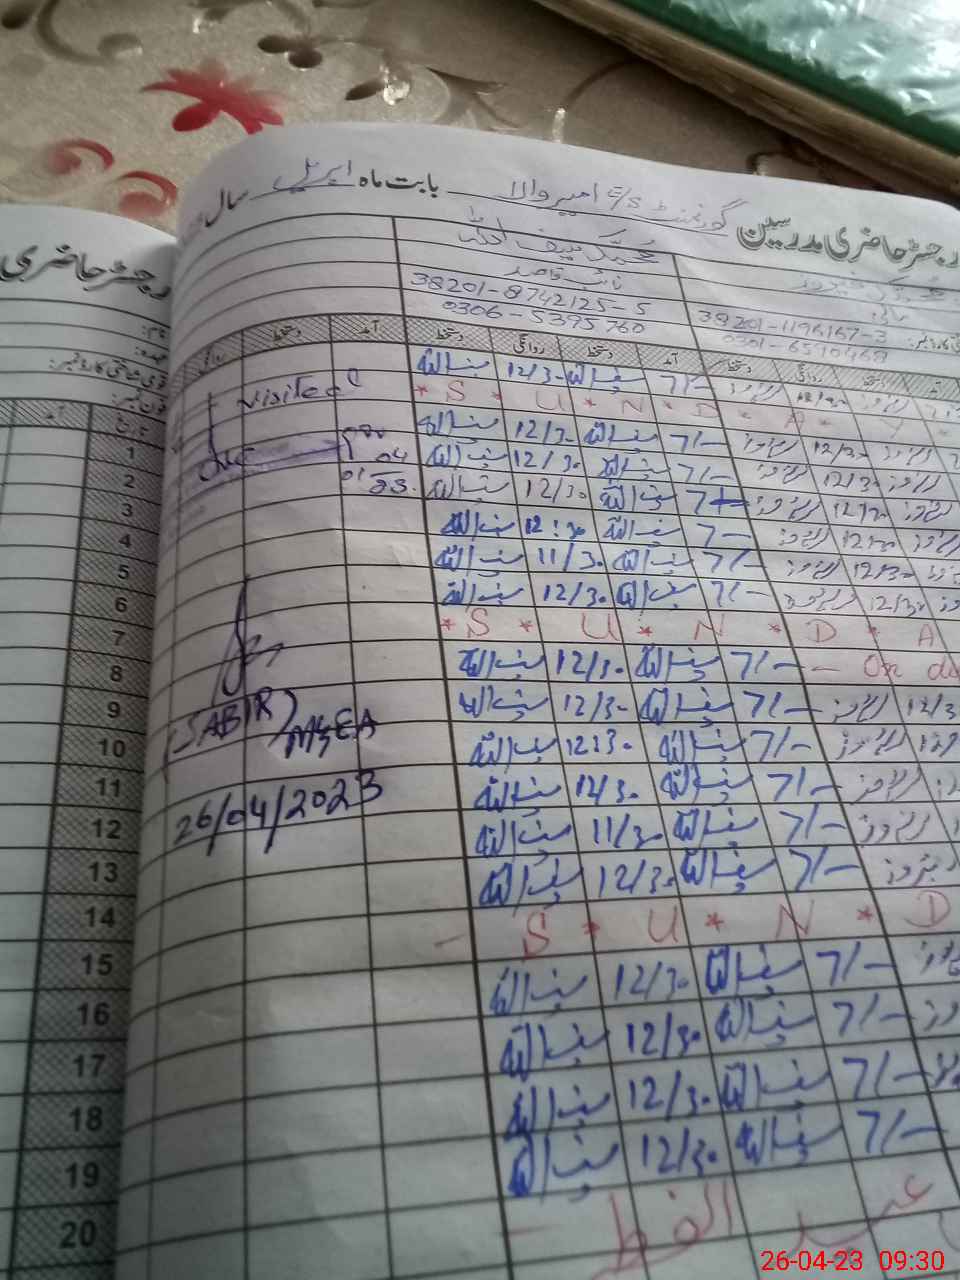 رجسٹر حاضری مدرسین گورنمنٹ E/S امیر والا بابت ماہ اپریل سال
رجسٹر حاضری
محمد سیف اللہ
نائب قاصد
38201-8742125-5
0306-5395760
مالی
38201-1196167-3
0301-6590468
نام:
عہدہ:
قومی شناختی کارڈ نمبر:
فون نمبر:
تاریخ آمد
روانگی دستخط آمد دستخط روانگی دستخط آمد دستخط روانگی دستخط آمد
سیف اللہ 12/30 سیف اللہ 7/-
Visited
* S * U * N * D * A * Y *
1 سیف اللہ 12/30 سیف اللہ 7/- 12/30
2 سیف اللہ 12/30 سیف اللہ 7/- 12/30
04
01 23.
3 سیف اللہ 12/30 سیف اللہ 7/- 12/30
4 سیف اللہ 12:30 سیف اللہ 7/- 12/30
5 سیف اللہ 11/30 سیف اللہ 7/- 12/30
6 سیف اللہ 12/30 سیف اللہ 7/- 12/30
7 * S * U * N * D * A
8 سیف اللہ 12/30 سیف اللہ 7/- On du
9 سیف اللہ 12/30 سیف اللہ 7/- 12/3
(SABIR) MGEA
10 سیف اللہ 12:30 سیف اللہ 7/-
11 سیف اللہ 12/30 سیف اللہ 7/-
26/04/2023
12 سیف اللہ 11/30 سیف اللہ 7/-
13 سیف اللہ 12/30 سیف اللہ 7/-
14 - S * U * N * D
15 سیف اللہ 12/30 سیف اللہ 7/-
16 سیف اللہ 12/30 سیف اللہ 7/-
17 سیف اللہ 12/30 سیف اللہ 7/-
18 سیف اللہ 12/30 سیف اللہ 7/-
19
20 عید الفطر
26-04-23 09:30